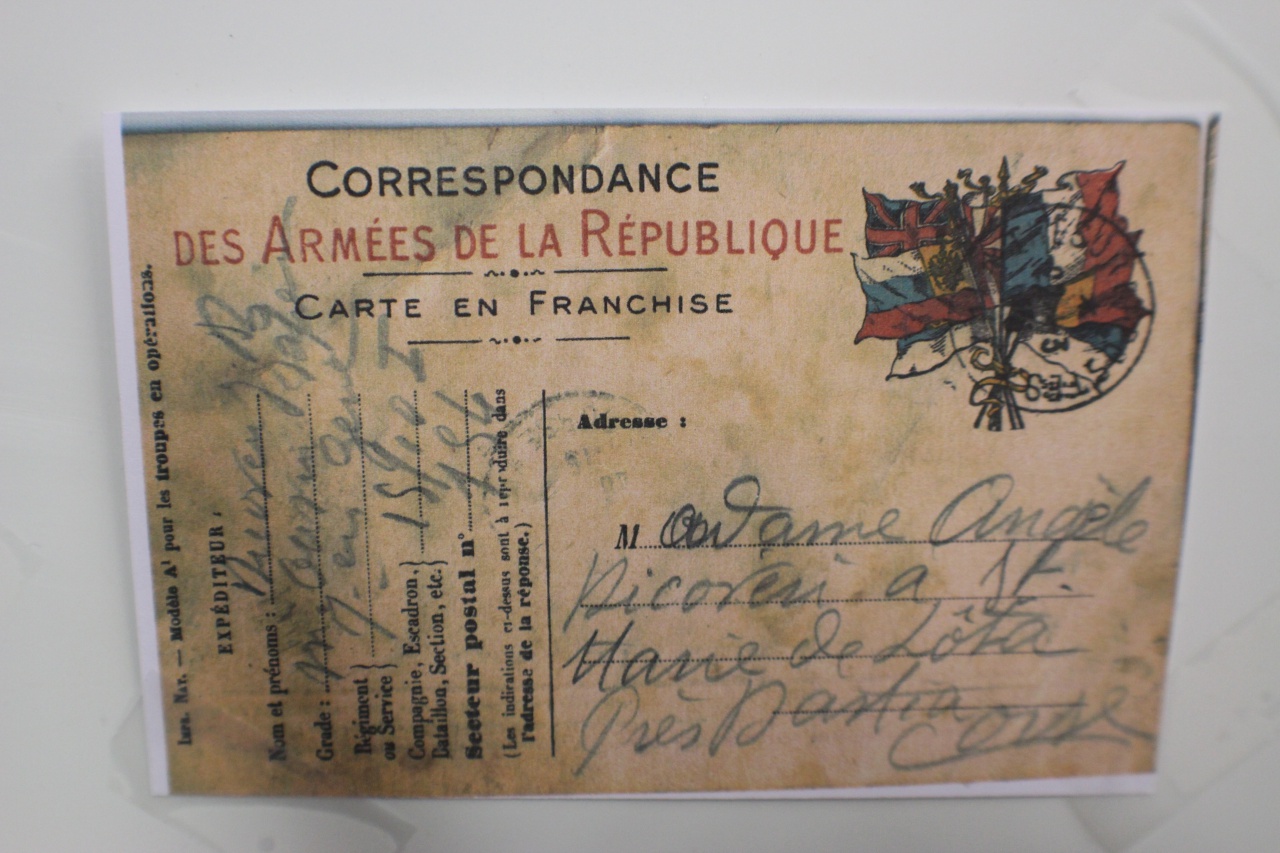 CORRESPONDANCE
DES ARMÉES DE LA RÉPUBLIQUE
CARTE EN FRANCHISE
Impr. Nat. — Modèle A¹ pour les troupes en opérations.
EXPÉDITEUR :
Nom et prénoms :
Grade :
Régiment
ou Service }
Compagnie, Escadron,
Bataillon, Section, etc. }
Secteur postal n°
(Les indications ci-dessus sont à reproduire dans
l'adresse de la réponse.)
Adresse :
Madame Angèle
a St.
Marie de Lôta
Près Bastia
Corse